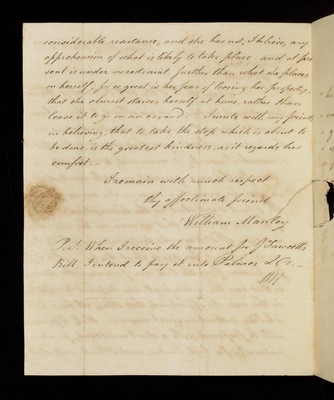 considerable resistance, and she has not, I believe, any
apprehension of what is likely to take place; and at pre
sent is under no restraint further than what she places
on herself, for so great is her fear of loosing her property
that she almost starves herself at home, rather than
leave it to go on an errand. — I unite with my friend
in believing, that to take the step which is about to
be done is the greatest kindness, as it regards her
comfort. —
I remain with much respect
thy affectionate friend
William Manley
P.S. When I receive the amount for J Fawcett's
Bill, I intend to pay it into Palmer & Co. —
WM